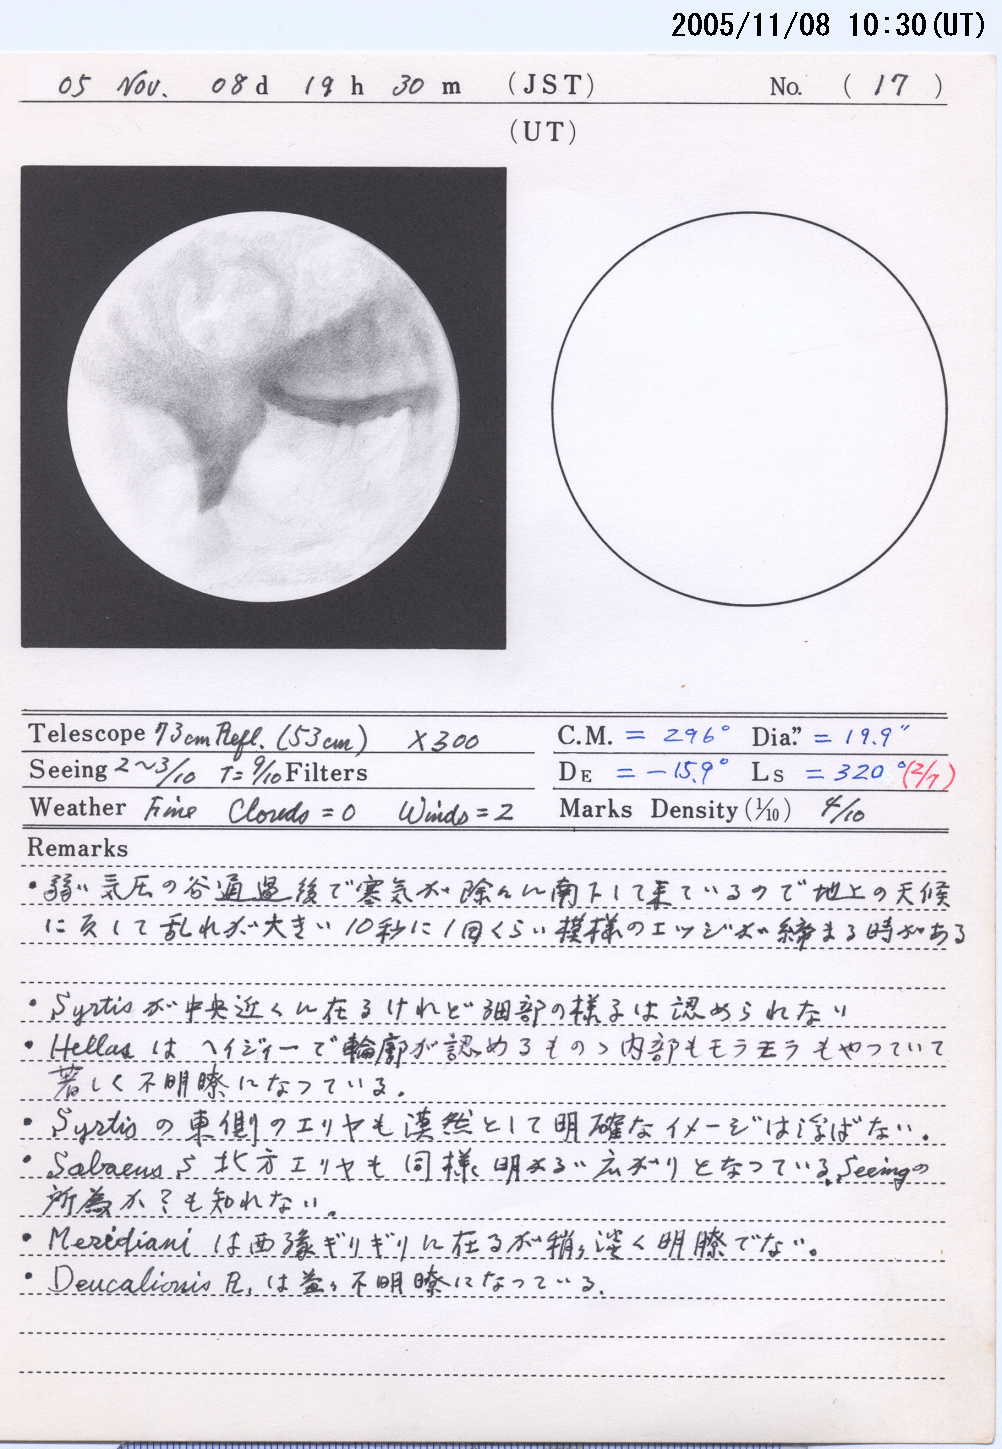 2005/11/08 10:30(UT)
05 Nov. 08d 19h 30m (JST) No. (17)
(UT)
Telescope 73cm Refl. (53cm) ×300
C.M. = 296° Dia." = 19.9"
Seeing 2~3/10 T=9/10 Filters
DE = -15.9° Ls = 320° (2/7)
Weather Fine Clouds=0 Winds=2
Marks Density (1/10) 4/10
Remarks
・弱い気圧の谷通過後で寒気が除々に南下して来ているので地上の天候
に反して乱れが大きい 10秒に1回くらい模様のエッジが締まる時がある
・Syrtisが中央近くに在るけれど細部の様子は認められない
・Hellasはヘイジィーで輪廓が認めるものゝ内部もモヤモヤもやっていて
著しく不明瞭になっている.
・Syrtisの東側のエリヤも漠然として明確なイメージは浮ばない.
・Sabaeus S北方エリヤも同様、明かるい広がりとなっている. Seeingの
所為か?も知れない.
・Meridianiは西縁ギリギリに在るが稍々淡く明瞭でない。
・Deucalionis R.は益々不明瞭になっている.